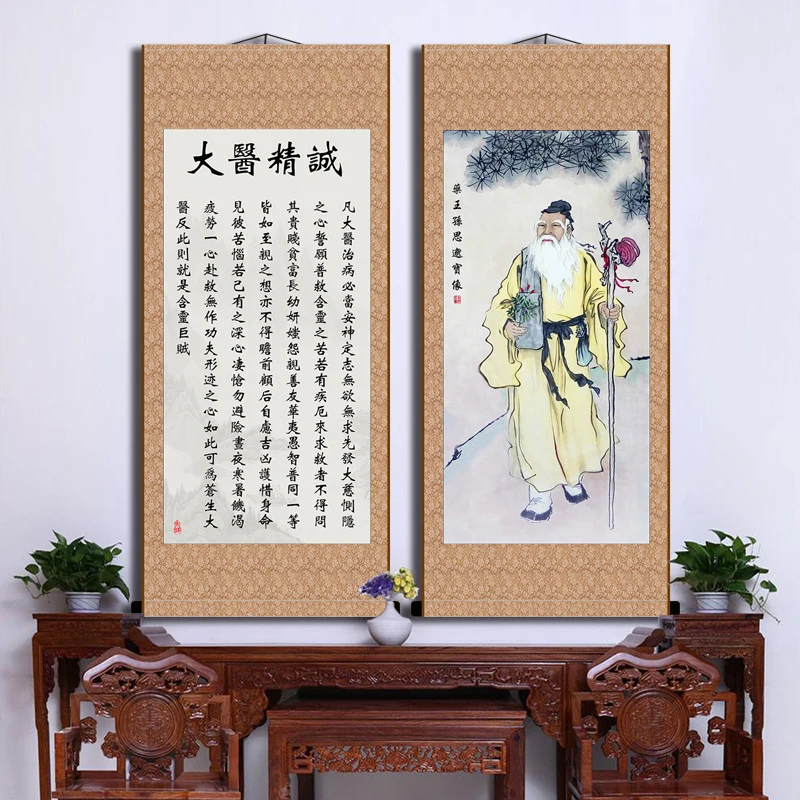 大醫精誠
凡大醫治病必當安神定志無欲無求先發大慈惻隱
之心誓願普救含靈之苦若有疾厄來求救者不得問
其貴賤貧富長幼妍媸怨親善友華夷愚智普同一等
皆如至親之想亦不得瞻前顧后自慮吉凶護惜身命
見彼苦惱若己有之深心凄愴勿避險晝夜寒暑饑渴
疲勞一心赴救無作功夫形迹之心如此可爲蒼生大
醫反此則就是含靈巨賊
藥王孫思邈寶像